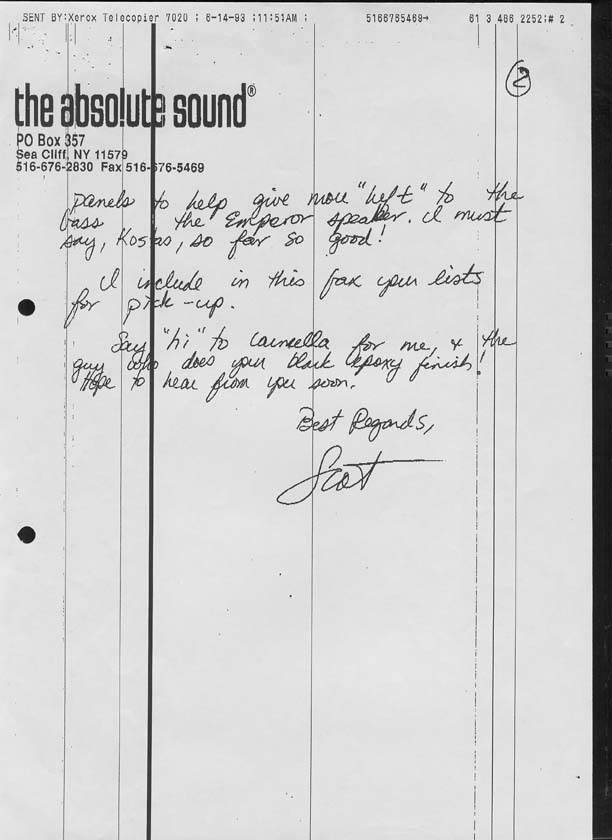 SENT BY:Xerox Telecopier 7020 ; 6-14-93 ;11:51AM ; 5166765469→ 61 3 486 2252;# 2
2
the absolute sound®
PO Box 357
Sea Cliff, NY 11579
516-676-2830 Fax 516-676-5469
panels to help give more "heft" to the
bass the Emperor speaker. I must
say, Kostas, so far so good!
I include in this fax your lists
for pick-up.
Say "hi" to for me, & the
guy who does your black epoxy finish!
Hope to hear from you soon.
Best Regards,
Scot